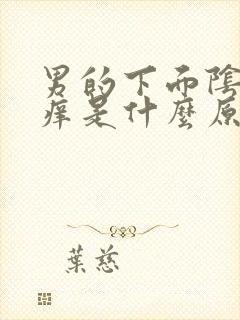 男的下面陰
痒是什麼原
葉慈